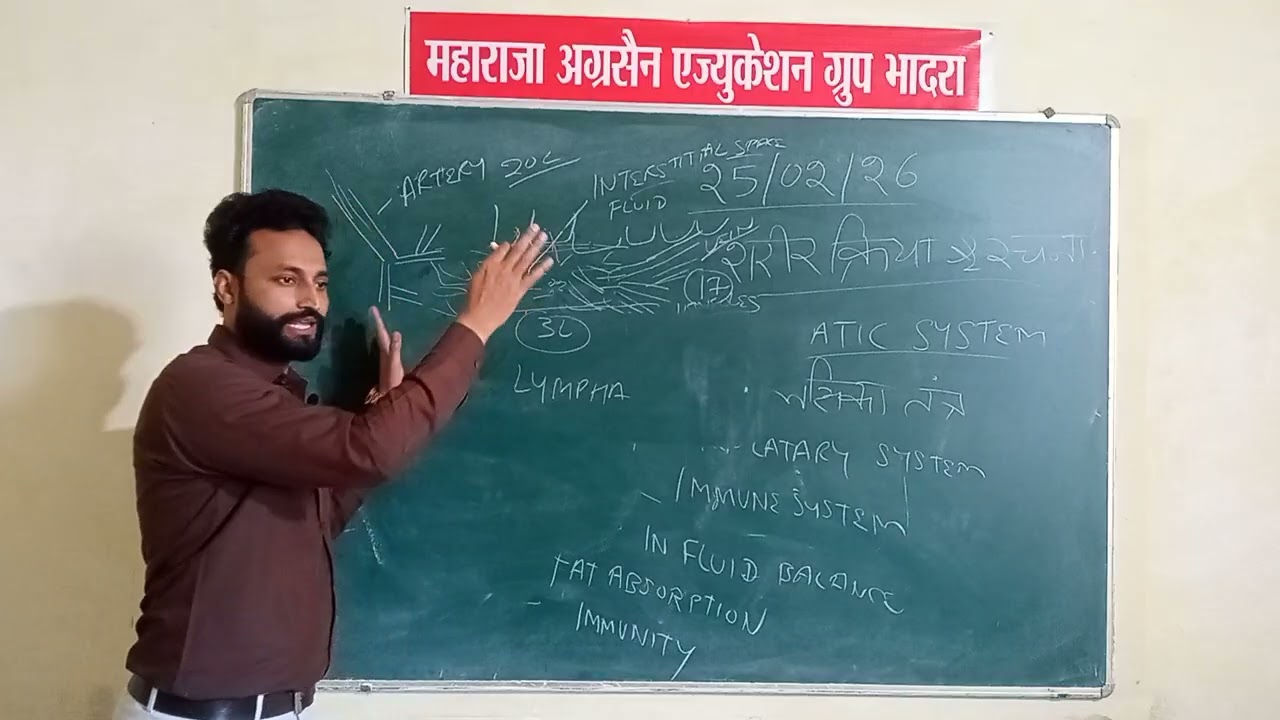 महाराजा अग्रसैन एज्युकेशन ग्रुप भादरा
ARTERY 20L
INTERSTITIAL SPACE
FLUID
25/02/26
VEIN
शरीर क्रिया
17
3L
ATIC SYSTEM
LYMPHA
तंत्र
LATARY SYSTEM
IMMUNE SYSTEM
IN FLUID BALANCE
FAT ABSORPTION
- IMMUNITY